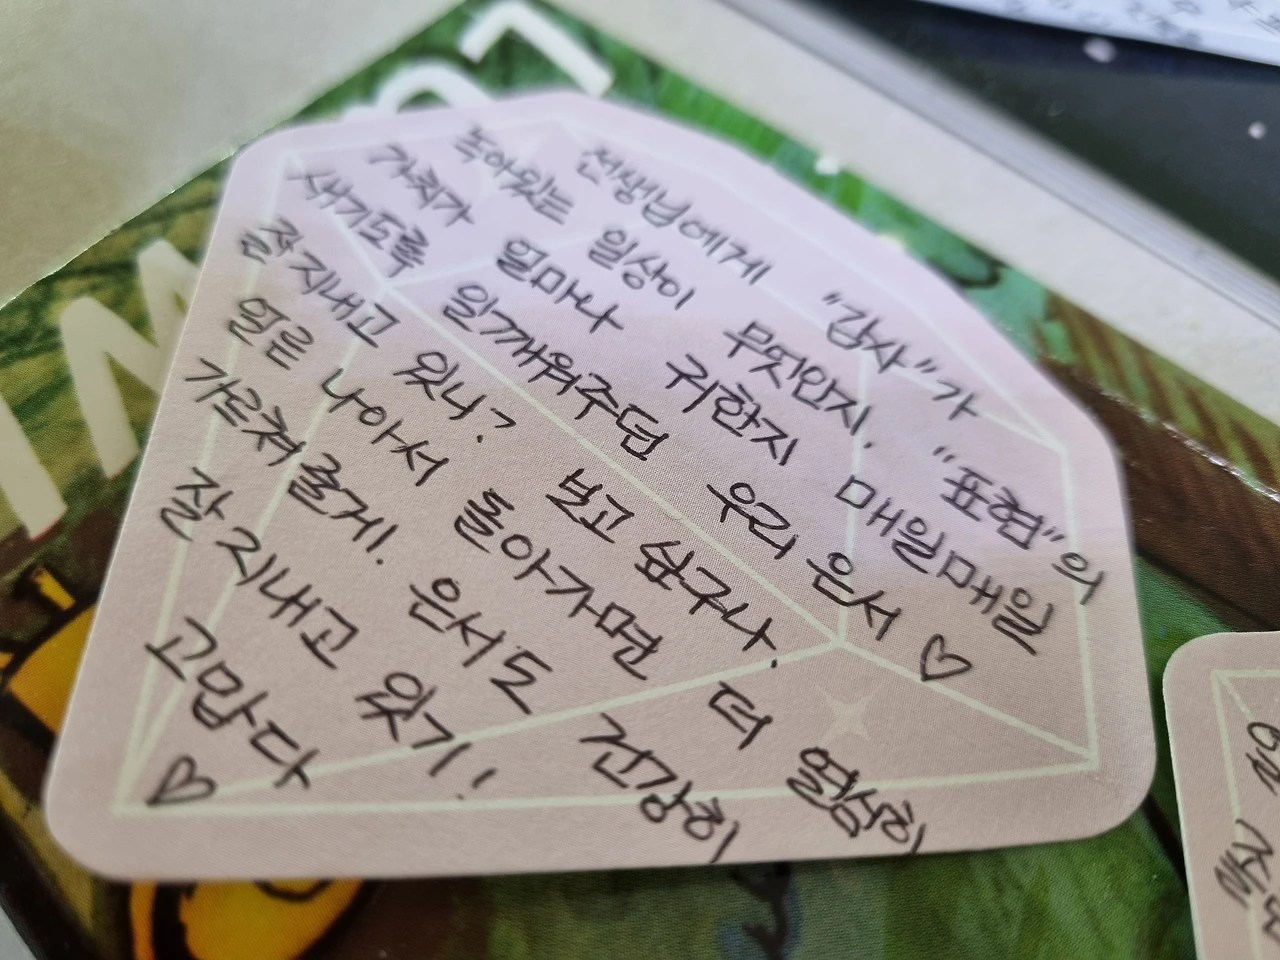 전쌤님에게 "감사"가
녹아있는 일상이 무엇인지. "표현"의
가치가 얼마나 귀한지 매일매일
새기도록 일깨워주던 우리 은서 ♡
잘 지내고 있니? 보고 싶구나.
얼른 나아서 돌아가면 더 열심히
가르쳐 줄게. 은서도 건강히
잘 지내고 있기!
고맙다
♡